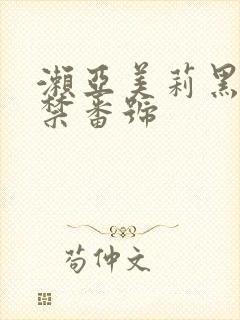 瀨亞美莉黑
禁番號
苟仲文